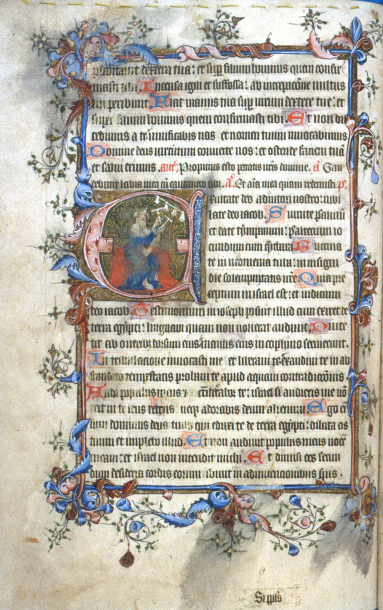 plantavit dextera tua: et sup filium hominis quem confir
masti tibi. Incensa igni et suffossa: ab increpacione vultus
tui peribunt. Fiat manus tua sup virum dextere tue: et
super filium hominis quem confirmasti tibi. Et non dis
cedimus a te vivificabis nos et nomen tuum invocabimus
Domine deus virtutum converte nos: et ostende faciem tuam
et salvi erimus. ant. Propicius esto pccatis nris domine. a Gau
debunt labia mea cu cantavero tibi. Et aia mea quam redemisti. p
Exultate deo adiutori nostro: iubi
late deo iacob. Sumite psalmum
et date tympanum: psalterium io
cundum cum cythara. Buccina
te in neomenia tuba: in insigni
die solempnitatis vre. Quia pre
ceptum in israel est: et iudicium
deo iacob. Testimonium in ioseph posuit illud cum exiret de
terra egipti: linguam quam non noverat audivit. Diver
tit ab oneribus dorsum eius: manus eius in cophino servierunt.
In tribulacione invocasti me et liberavi te: exaudivi te in ab
scondito tempestatis probavi te apud aquam contradictionis.
Audi populus meus et contestabor te: israel si audieris me non
erit in te deus recens neque adorabis deum alienum. Ego
sum dominus deus tuus qui eduxi te de terra egipti: dilata os
tuum et implebo illud. Et non audivit populus meus vocem
meam: et israel non intendit michi. Et dimisi eos secun
dum desideria cordis eorum: ibunt in adinvencionibus suis.
Si ppls